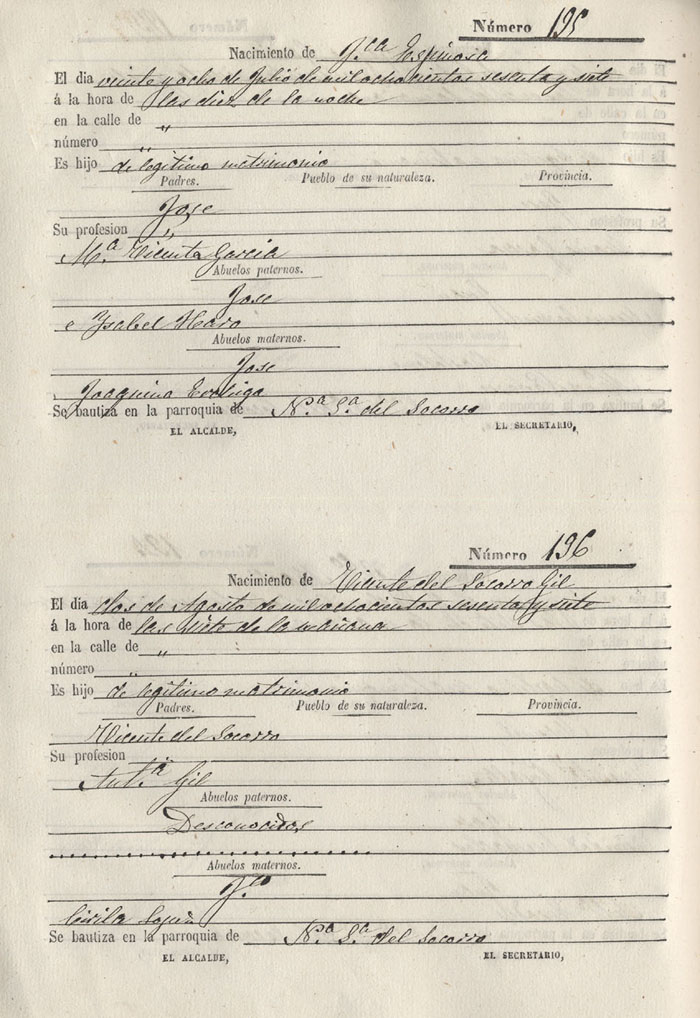 Número 195
Nacimiento de J.ca Espinosa
El dia veinte y ocho de Julio de mil ochocientos sesenta y siete
á la hora de las diez de la noche
en la calle de „
número „
Es hijo de legitimo matrimonio
Padres. Pueblo de su naturaleza. Provincia.
Jose
Su profesion „
M.a Vicenta Garcia
Abuelos paternos.
Jose
e Ysabel Haro
Abuelos maternos.
Jose
Joaquina
Se bautiza en la parroquia de N.a S.a del Socorro
EL ALCALDE, EL SECRETARIO,
Número 196
Nacimiento de Vicente del Socorro Gil
El dia dos de Agosto de mil ochocientos sesenta y siete
á la hora de las siete de la mañana
en la calle de „
número „
Es hijo de legitimo matrimonio
Padres. Pueblo de su naturaleza. Provincia.
Vicente del Socorro
Su profesion
Ant.a Gil
Abuelos paternos.
Desconocidos
Abuelos maternos.
J.co
Se bautiza en la parroquia de N.a S.a del Socorro
EL ALCALDE, EL SECRETARIO,